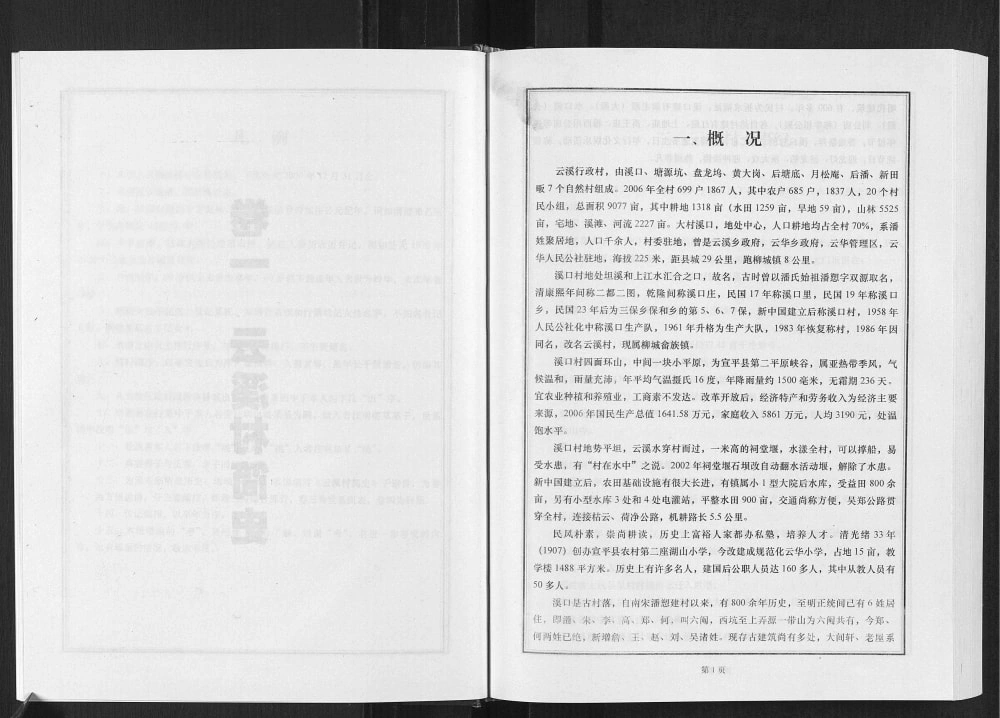 一、概 况
云溪行政村，由溪口、塘源坑、盘龙坞、黄大岗、后塘底、月松庵、后潘、新田
畈 7 个自然村组成。2006 年全村 699 户 1867 人，其中农户 685 户，1837 人，20 个村
民小组，总面积 9077 亩，其中耕地 1318 亩（水田 1259 亩，旱地 59 亩），山林 5525
亩，宅地、溪滩、河流 2227 亩。大村溪口，地处中心，人口耕地均占全村 70%，系潘
姓聚居地，人口千余人，村委驻地，曾是云溪乡政府，云华乡政府，云华管理区，云
华人民公社驻地，海拔 225 米，距县城 29 公里，跑柳城镇 8 公里。
溪口村地处坦溪和上江水汇合之口，故名，古时曾以潘氏始祖潘愬字双源取名，
清康熙年间称二都二图，乾隆间称溪口庄，民国 17 年称溪口里，民国 19 年称溪口
乡，民国 23 年后为三保乡保和乡的第 5、6、7 保，新中国建立后称溪口村，1958 年
人民公社化中称溪口生产队，1961 年升格为生产大队，1983 年恢复称村，1986 年因
同名，改名云溪村，现属柳城畲族镇。
溪口村四面环山，中间一块小平原，为宣平县第二平原峡谷，属亚热带季风，气
候温和，雨量充沛，年平均气温摄氏 16 度，年降雨量约 1500 毫米，无霜期 236 天。
宜农业种植和养殖业，工商素不发达。改革开放后，经济特产和劳务收入为经济主要
来源，2006 年国民生产总值 1641.58 万元，家庭收入 5861 万元，人均 3190 元，处温
饱水平。
溪口村地势平坦，云溪水穿村而过，一米高的祠堂堰，水漾全村，可以撑船，易
受水患，有“村在水中”之说。2002 年祠堂堰石坝改自动翻水活动堰，解除了水患。
新中国建立后，农田基础设施有很大长进，有镇属小 1 型大院后水库，受益田 800 余
亩，另有小型水库 3 处和 4 处电灌站，平整水田 900 亩，交通尚称方便，吴郑公路贯
穿全村，连接枯云、荷净公路，机耕路长 5.5 公里。
民风朴素，崇尚耕读，历史上富裕人家都办私塾，培养人才。清光绪 33 年
（1907）创办宣平县农村第二座湖山小学，今改建成规范化云华小学，占地 15 亩，教
学楼 1488 平方米。历史上有许多名人，建国后公职人员达 160 多人，其中从教人员有
50 多人。
溪口是古村落，自南宋潘愬建村以来，有 800 余年历史，至明正统间已有 6 姓居
住，即潘、朱、李、高、郑、何，叫六阄，西坑至上弄源一带山为六阄共有，今郑、
何两姓已绝，新增翁、王、赵、刘、吴诸姓。现存古建筑尚有多处，大间轩、老屋系
第 1 页